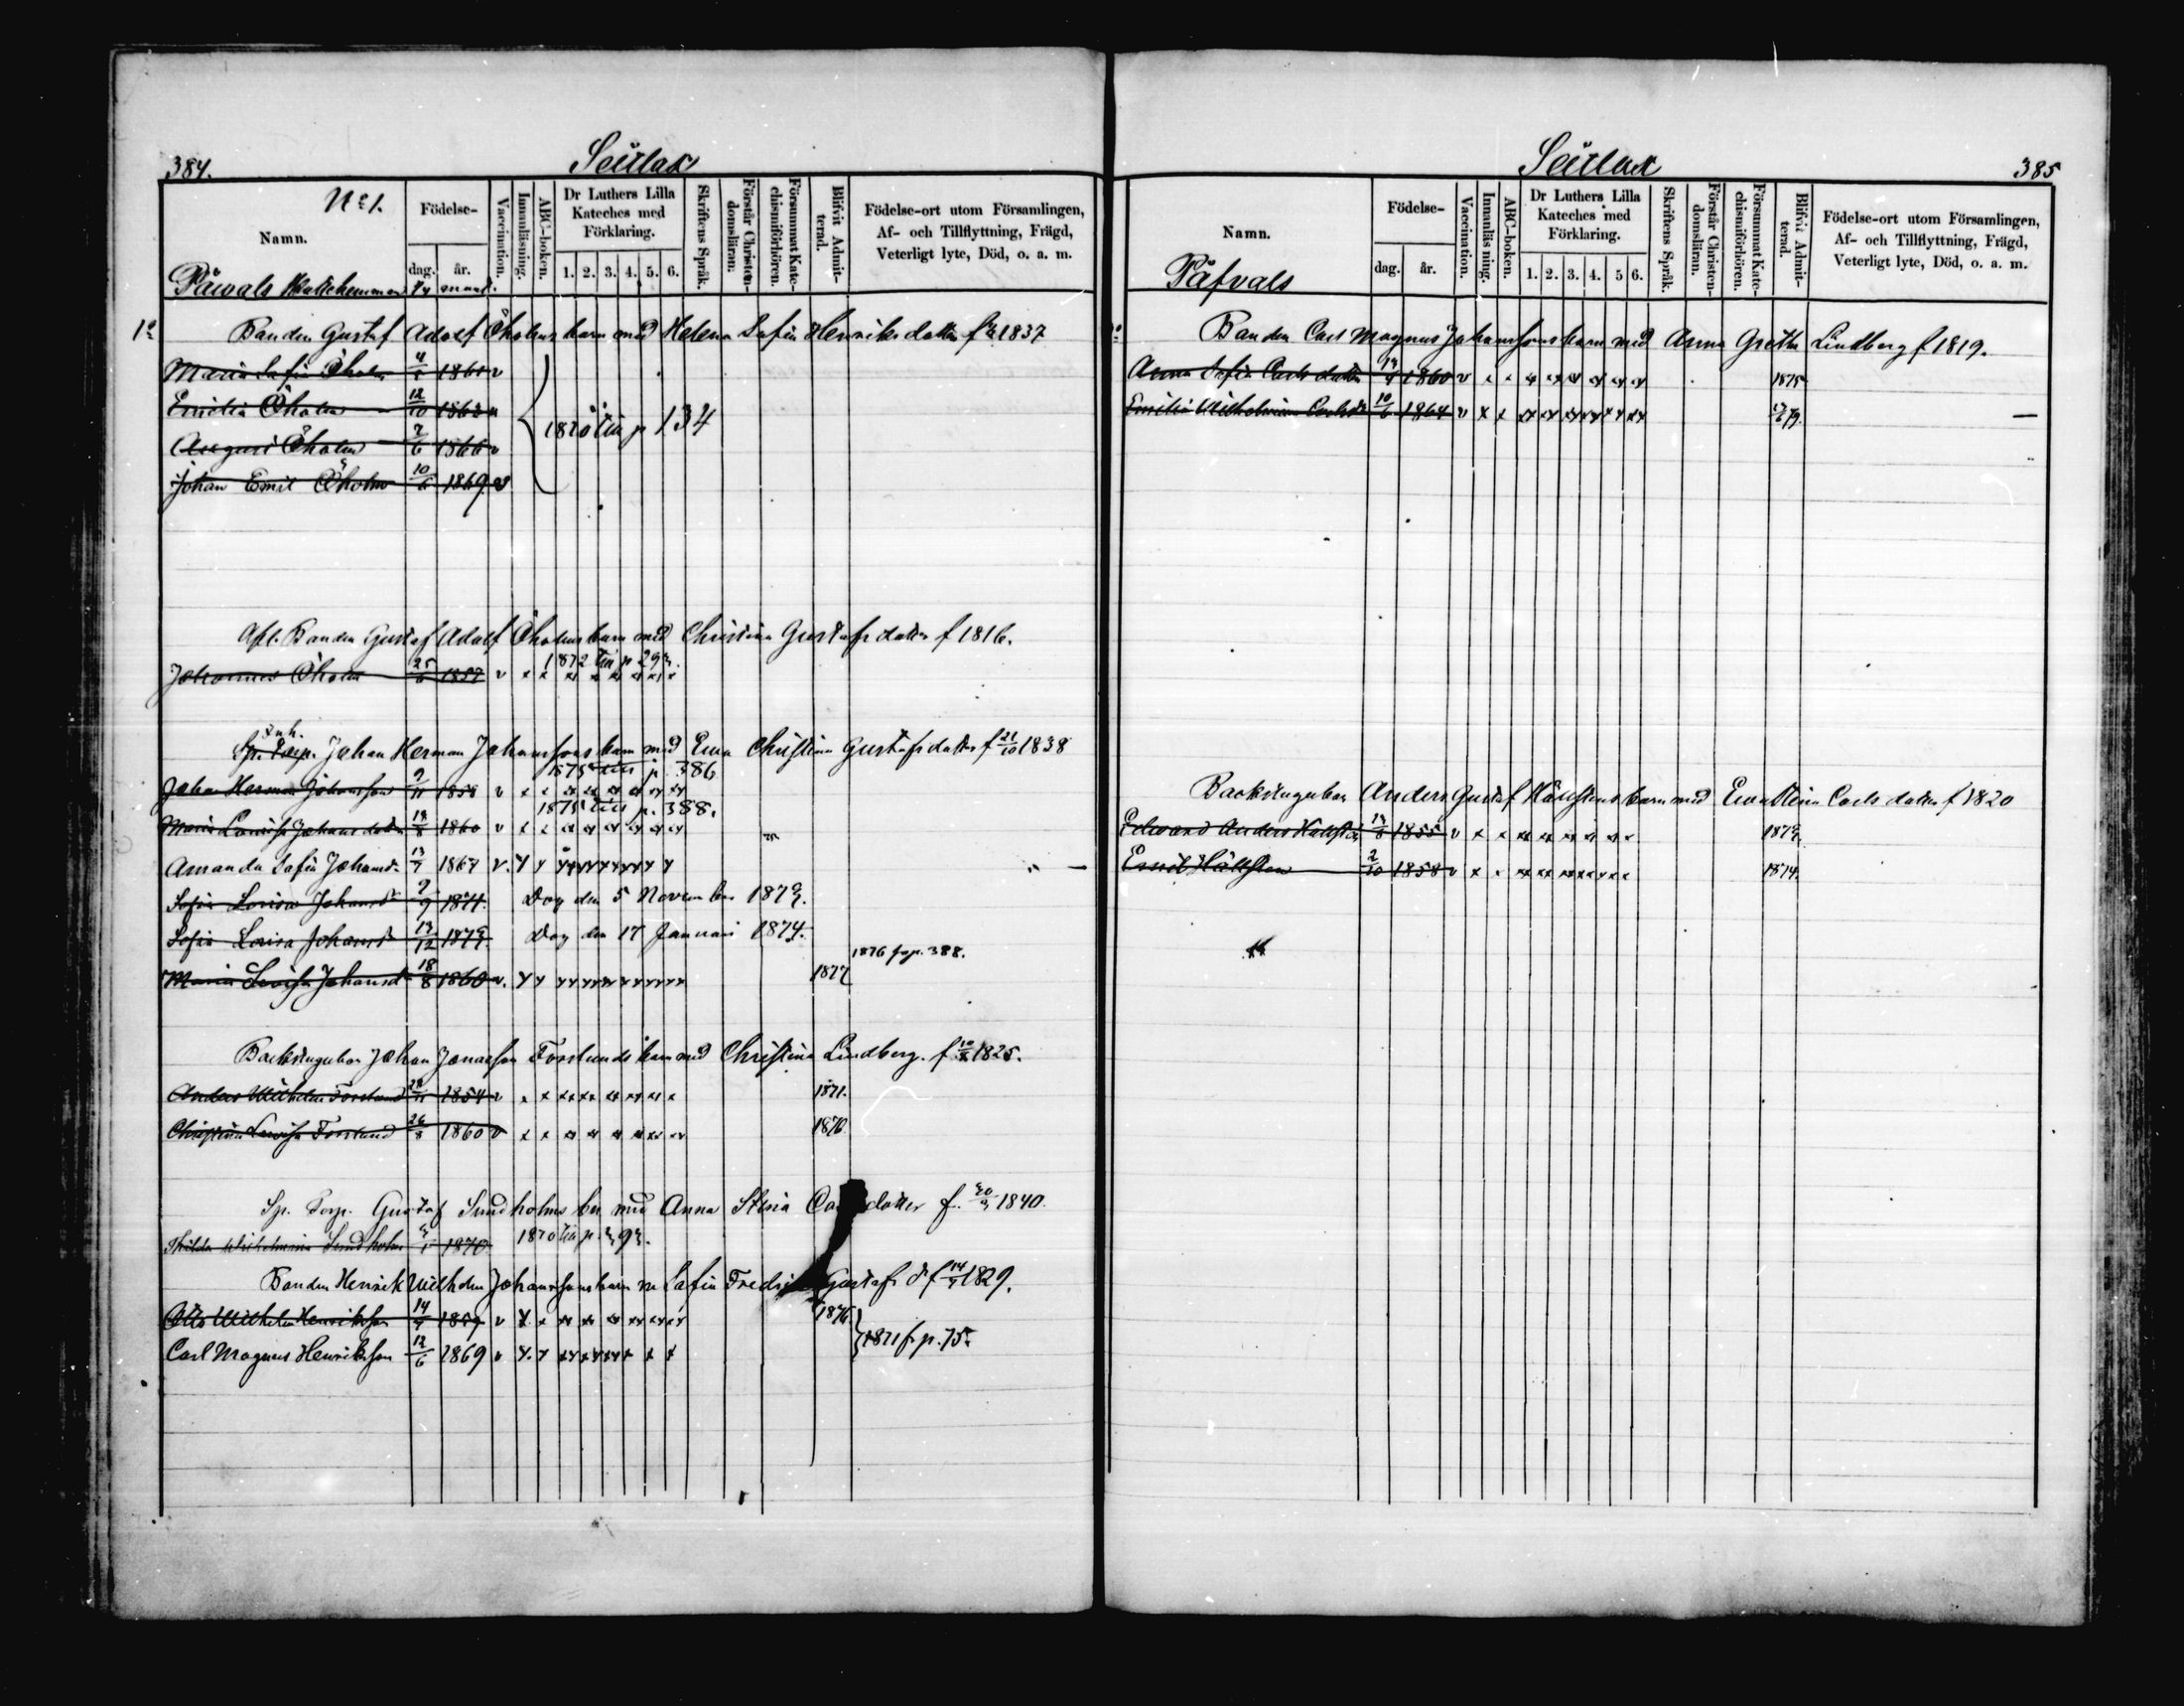 384.
Seitlax
N:o 1.
Namn.
Födelse-
dag.
år.
Vaccination.
Innanläsning.
ABC-boken.
Dr Luthers Lilla
Kateches med
Förklaring.
1. 2. 3. 4. 5. 6.
Skriftens Språk.
Förstår Christen-
domsläran:
Försummat Kate-
chismiförhören.
Blifvit Admit-
terad.
Födelse-ort utom Församlingen,
Af- och Tillflyttning, Frägd,
Veterligt lyte, Död, o. a. m.
Påwals Skattehemman
Bonden Gustaf Adolf Öholms barn med Helena Sofia Henriks dotter f 1837
Maria Sofia Öholm 1861 v
Emilia Öholm 12/10 1862
August Öholm 7/6 1866 v
1870 till p 134
Johan Emil Öholm 10/6 1869 v
Afl. Bonden Gustaf Adolf Öholms barn med Christina Gustafs dotter f 1816.
1872 till p 293.
Johannes Öholm 25/6 1857 v x x
Inh.
Sp. Torp. Johan Herman Johanssons barn med Eva Christina Gustafs dotter f 21/10 1838
1875 till p. 386
Johan Herman Johansson 9/11 1858 v x x
1875 till p. 388.
Maria Lovisa Johans dotter 18/8 1860 v x x
Amanda Sofia Johansd. 13/7 1867 v.
Sofia Lovisa Johansd 9/9 1871. Dog den 5 November 1873.
Sofia Lovisa Johansd 13/12 1873. Dog den 17 Januari 1874.
1876 fr p. 388.
Maria Lovisa Johansd 18/8 1860 v. 1877
Backstugubon Johan Jonasson Forslunds barn med Christina Lindberg. f 1825.
Anders Wilhelm Forslund 1854 v 1871.
Christina Lovisa Forslund 26/8 1860 v 1876
Sp. Torp. Gustaf Sundholms bn med Anna Stina dotter f. 1840.
Thilda Wilhelmina Sundholm 1870 1870 till p. 393.
Bonden Henrik Wilhelm Johanssons barn m Sofia Gustafs d f 14/7 1829.
Otto Wilhelm Henriksson 14/9 1859 v 1876
1871 fr p. 75.
Carl Magnus Henriksson 12/6 1869 v
Seitlax
385
Namn.
Födelse-
dag.
år.
Vaccination.
Innanläsning.
ABC-boken.
Dr Luthers Lilla
Kateches med
Förklaring.
1. 2. 3. 4. 5 6.
Skriftens Språk.
Förstår Christen-
domsläran.
Försummat Kate-
chismiförhören.
Blifvit Admit-
terad.
Födelse-ort utom Församlingen,
Af- och Tillflyttning, Frägd,
Veterligt lyte, Död, o. a. m.
Påfvals
Bonden Carl Magnus Johanssons barn med Anna Greta Lindberg f 1819.
Anna Sofia Carls dotter 1860 v 1875
Emilia Wilhelmina Carlsdr 10/6 1864 v x x 79.
Backstugubon Anders Gustaf Hällstens barn med Eva Stina Carls dotter f 1820
Edvard Anders Hällsten 13/8 1855 v x x 1873
Emil Hällsten 2/10 1858 v x 1874.